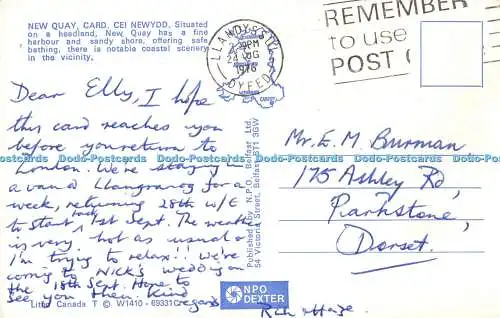 NEW QUAY, CARD. CEI NEWYDD. Situated
on a headland, New Quay has a fine
harbour and sandy shore, offering safe
bathing, there is notable coastal scenery
in the vicinity.
Dear Elly, I hope
this card reaches you
before you return to
London. We're staying in
a van @ Llangranog for a
week, returning 28th W/E
to start back 1st Sept. The weather
is very hot as usual &
I'm trying to relax!! We're
coming to NICK'S wedding on
the 18th Sept. Hope to
see you then. Kind
regards
Litho Canada T © W1410 - 69331C
LLANDYSSUL
PM
1976
DYFED
CARDIFF
REMEMBER
to use
POST
Published by N.P.O. Belfast Ltd.
54 Victoria Street, Belfast BT1 3GW
Mr. E. M. Burman
175 Ashley Rd,
Parkstone,
Dorset.
NPO
DEXTER
Dodo-Postcards Dodo-Postcards Dodo-Postcards Dodo-Postcards Dodo-Postcards Dodo-Postcards